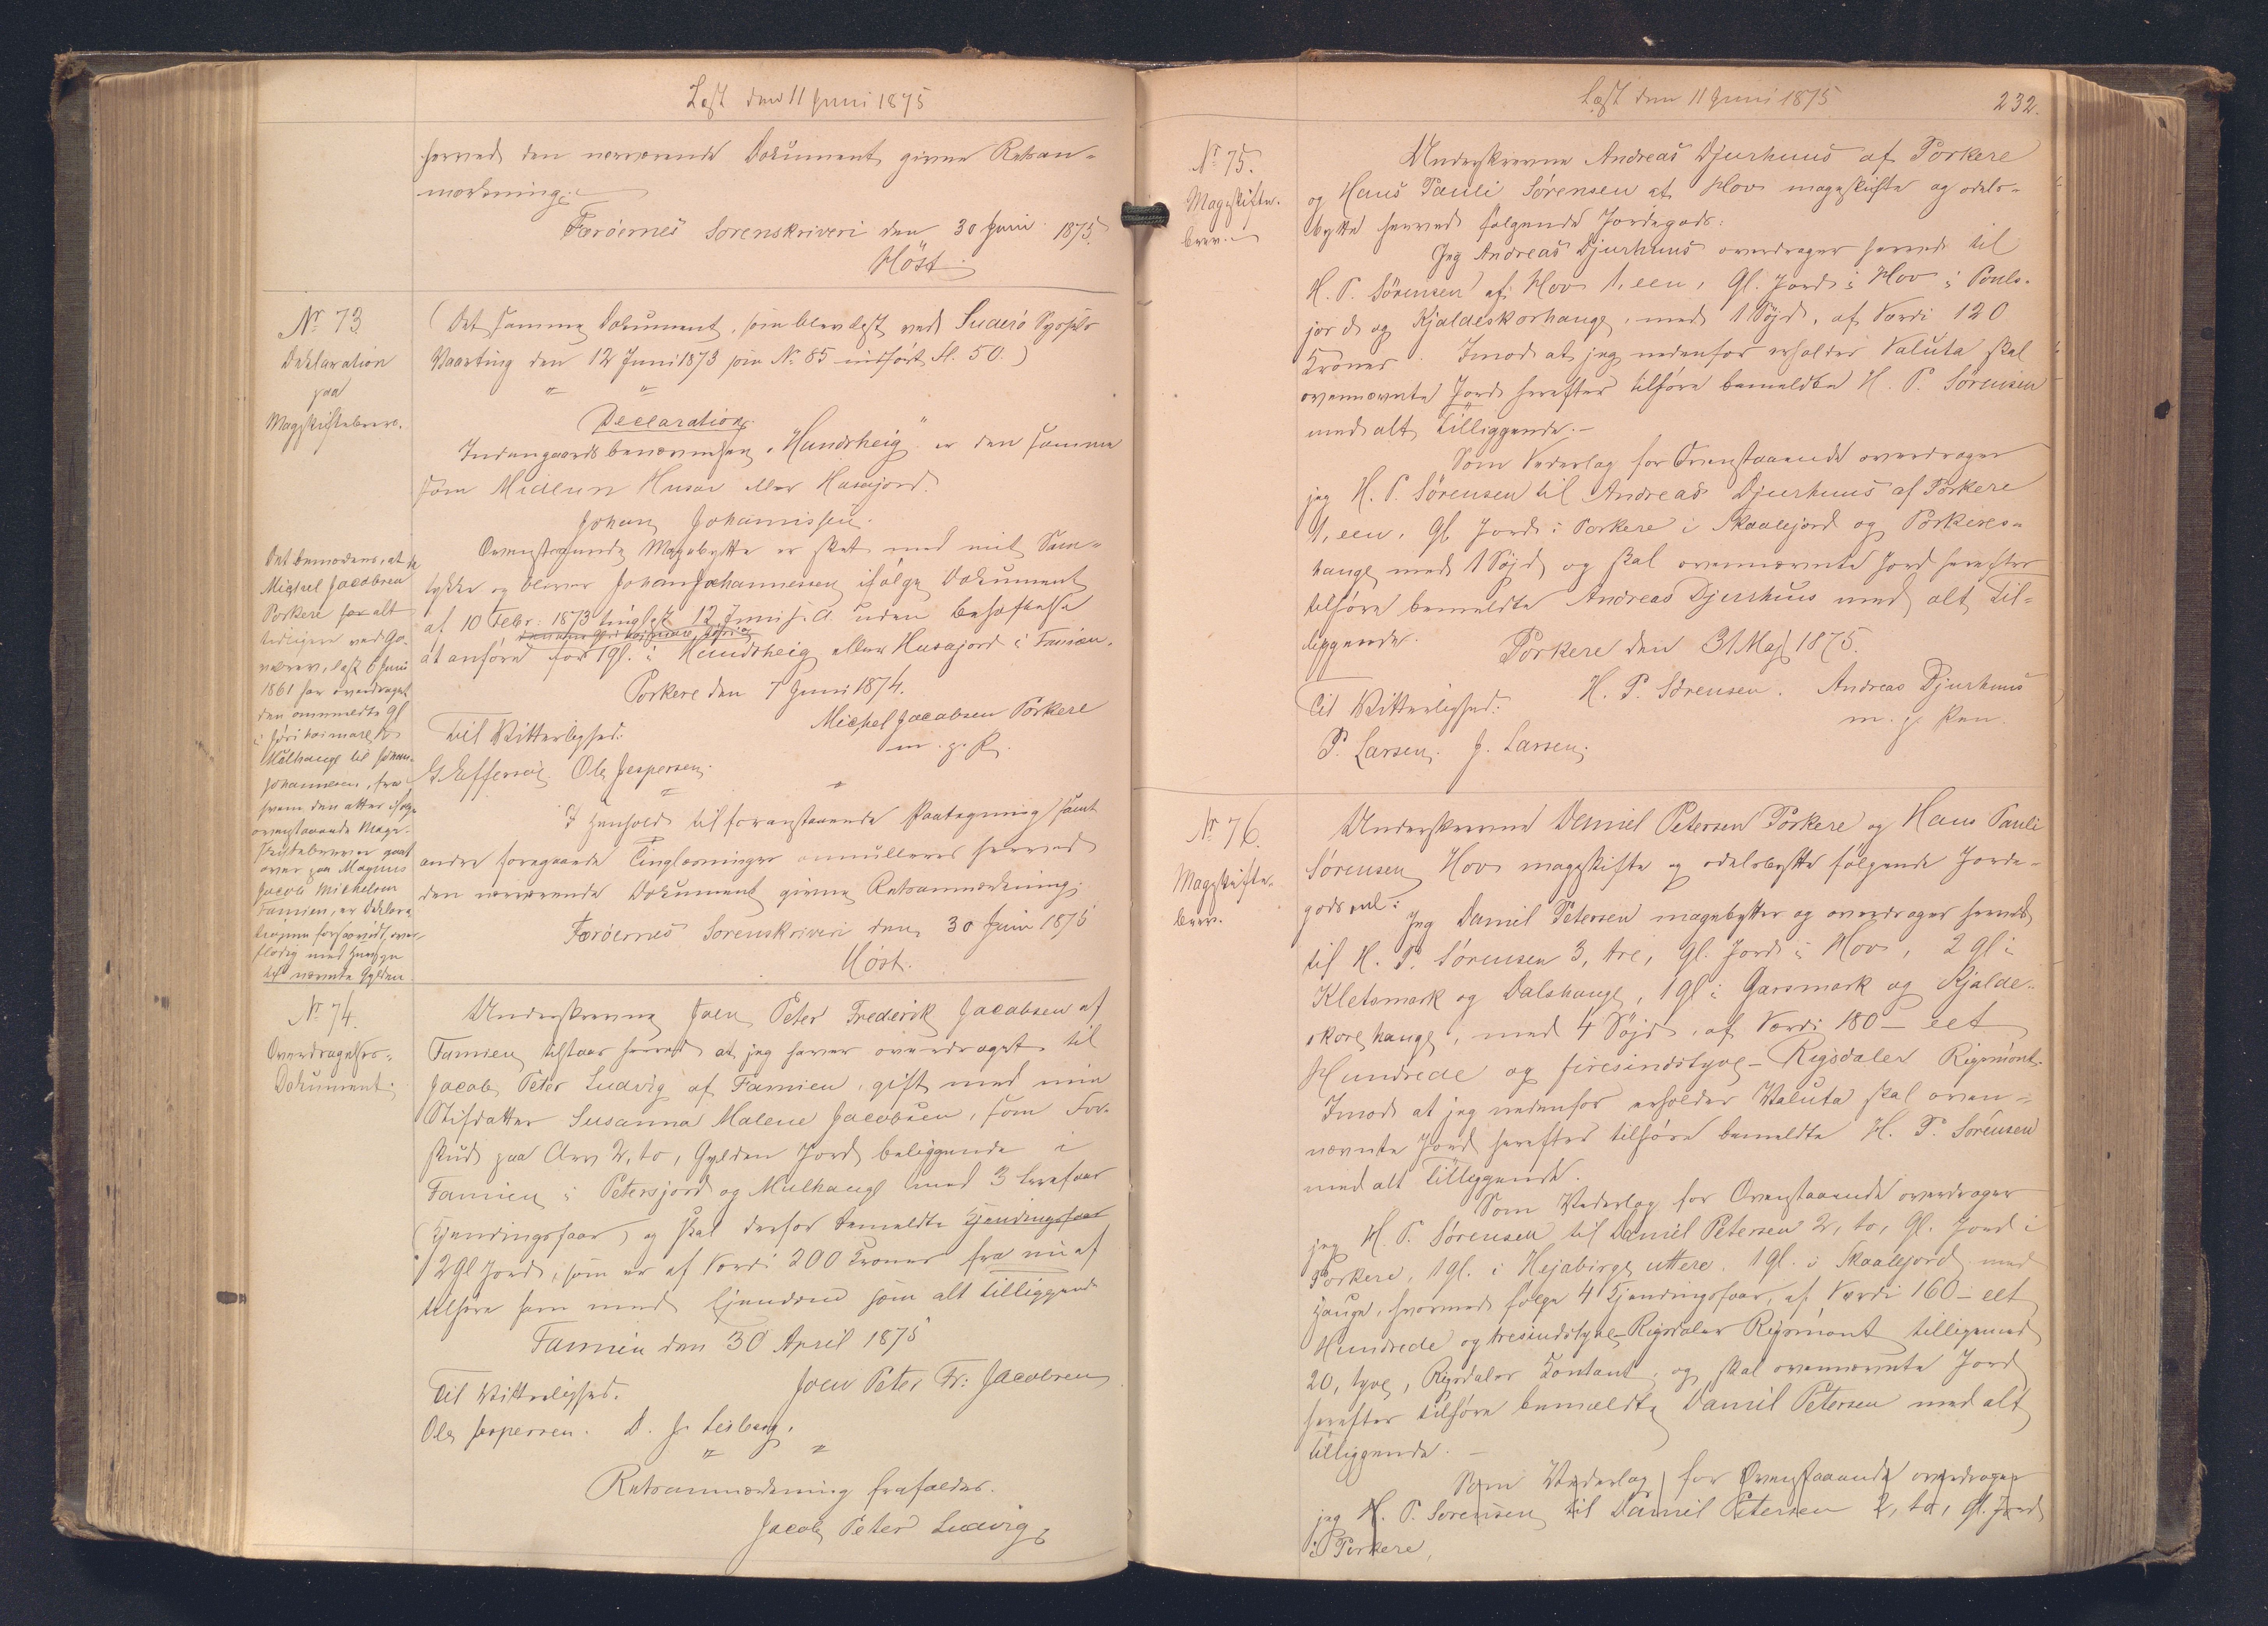 Læst den 11 Juni 1875
herved den nærværende Dokument givne Retsan-
mærkning.
Færöernes Sorenskriveri den 30 Juni 1875.
Höst.
Nr. 73.
Deklaration
paa
Magskiftebrev.
(Det samme Dokument, som blev læst ved Suderö Syssels
Vaarting den 12 Juni 1873 som No. 85 indfört fl. 50.)
Declaration.
Indengaardsbenævnelsen "Hundsheig" er den samme
som Midlun Husar eller Husajord.
Johan Johannissen.
Ovenstaaende Magebytte er sket med mit Sam-
tykke og bliver Johan Johannessen ifølge Dokument
af 10 Febr: 1873 tinglæst 12 Juni s. A. uden Behæftelse
at anføre for 1 gl. i Hundsheig eller Husajord i Famien.
Porkere den 7 Juni 1874.
Michel Jacobsen Porkere
m. p. P.
Til Vitterlighed:
G Effersöe. Ole Jespersen.
I Henhold til foranstaaende Paategning samt
andre foregaaende Tinglæsninger annulleres herved
den nærværende Dokument givne Retsanmærkning.
Færöernes Sorenskriveri den 30 Juni 1875
Höst.
Det bemærkes, at da
Michel Jacobsen
Porkere har alt
tidligere ved Ga-
vebrev, læst 6 Juni
1861 har overdraget
den ommeldte Gl
i
Mülhauge til Johan
Johannesen, fra
hvem den atter ifølge
ovenstaaende Mage-
skiftebrev er gaaet
over paa Magnus
Jacob Michelsen
Famien, er Deklara-
tionen forsaavidt over-
flödig med Hensyn
til nævnte Gylden
Nr. 74.
Overdragelses-
Dokument.
Underskrevne Joen Peter Frederik Jacobsen af
Famien tilstaar herved at jeg haver overdraget til
Jacob Peter Ludvig af Famien, gift med min
Stifdatter Susanna Malene Jacobsen, som For-
skud paa Arv 2, to, Gylden Jord beliggende i
Famien i Petersjord og Mülhauge med 3
(Kjendingsfaar) og skal derfor bemeldte Kjendingsfaar
2 gl Jord, som er af Værdi 200 Kroner fra nu af
tilhøre ham med Ejendom som alt tilliggende
Famien den 30 April 1875
Joen Peter Fr: Jacobsen
Til Vitterlighed.
Ole Jespersen. D. J. Lisberg.
Retsanmærkning frafaldes.
Jacob Peter Ludvig
Læst den 11 Juni 1875
232.
Nr. 75.
Mageskifte-
brev.
Underskrevne Andreas Djurhuus af Porkere
og Hans Pauli Sørensen af Hov mageskifte og odels-
bytte herved følgende Jordegods:
Jeg Andreas Djurhuus overdrager herved til
H. P. Sörensen af Hov 1, een, Gl. Jord i Hov i Pouls-
jord og Kjaldeskorhauge, med 1 Söjd, af Værdi 120
Kroner. Imod at jeg nedenfor erholder Valuta skal
ovennævnte Jord herefter tilhøre bemeldte H. P. Sörensen
med alt Tilliggende.-
Som Vederlag for Ovenstaaende overdrager
jeg H. P. Sörensen til Andreas Djurhuus af Porkere
1, een, Gl. Jord i Porkere i Skaalejord og Porkeres-
hauge med 1 Söjd og skal ovennævnte Jord herefter
tilhøre bemeldte Andreas Djurhuus med alt Til-
liggende.
Porkere den 31 Maj 1875.
H. P. Sörensen. Andreas Djurhuus
m. p. Pen.
Til Vitterlighed:
P. Larsen. J. Larsen.
Nr. 76.
Mageskifte-
brev.
Underskrevne Daniel Petersen Porkere og Hans Pauli
Sörensen Hov mageskifte og odelsbytte følgende Jorde-
gods
Jeg Daniel Petersen magebytter og overdrager herved
til H. P. Sörensen 3, tre, Gl. Jord i Hov, 2 gl i
Kletsmark og Dalshauge, 1 gl i Garsmark og Kjalde-
skorehauge, med 4 Söjd, af Værdi 180 - eet
Hundrede og firesindstyve - Rigsdaler Rigsmönt.
Imod at jeg nedenfor erholder Valuta skal oven-
nævnte Jord herefter tilhøre bemeldte H. P. Sörensen
med alt Tilliggende.
Som Vederlag for Ovenstaaende overdrager
jeg H. P. Sörensen til Daniel Petersen 2, to, Gl. Jord i
Porkere, 1 gl. i Hejabirge uttere, 1 gl. i Skaalejord med
Hauge, hvormed følge 4 Kjendingsfaar, af Værdi 160 - eet
Hundrede og tresindstyve - Rigsdaler Rigsmönt tilligemed
20, tyve, Rigsdaler Kontant, og skal ovennævnte Jord
herefter tilhøre bemældte Daniel Petersen med alt
Tilliggende.-
Som Vederlag for Ovenstaaende overdrager
jeg H. P. Sørensen til Daniel Petersen 2, to, Gl. Jord
i Porkere,